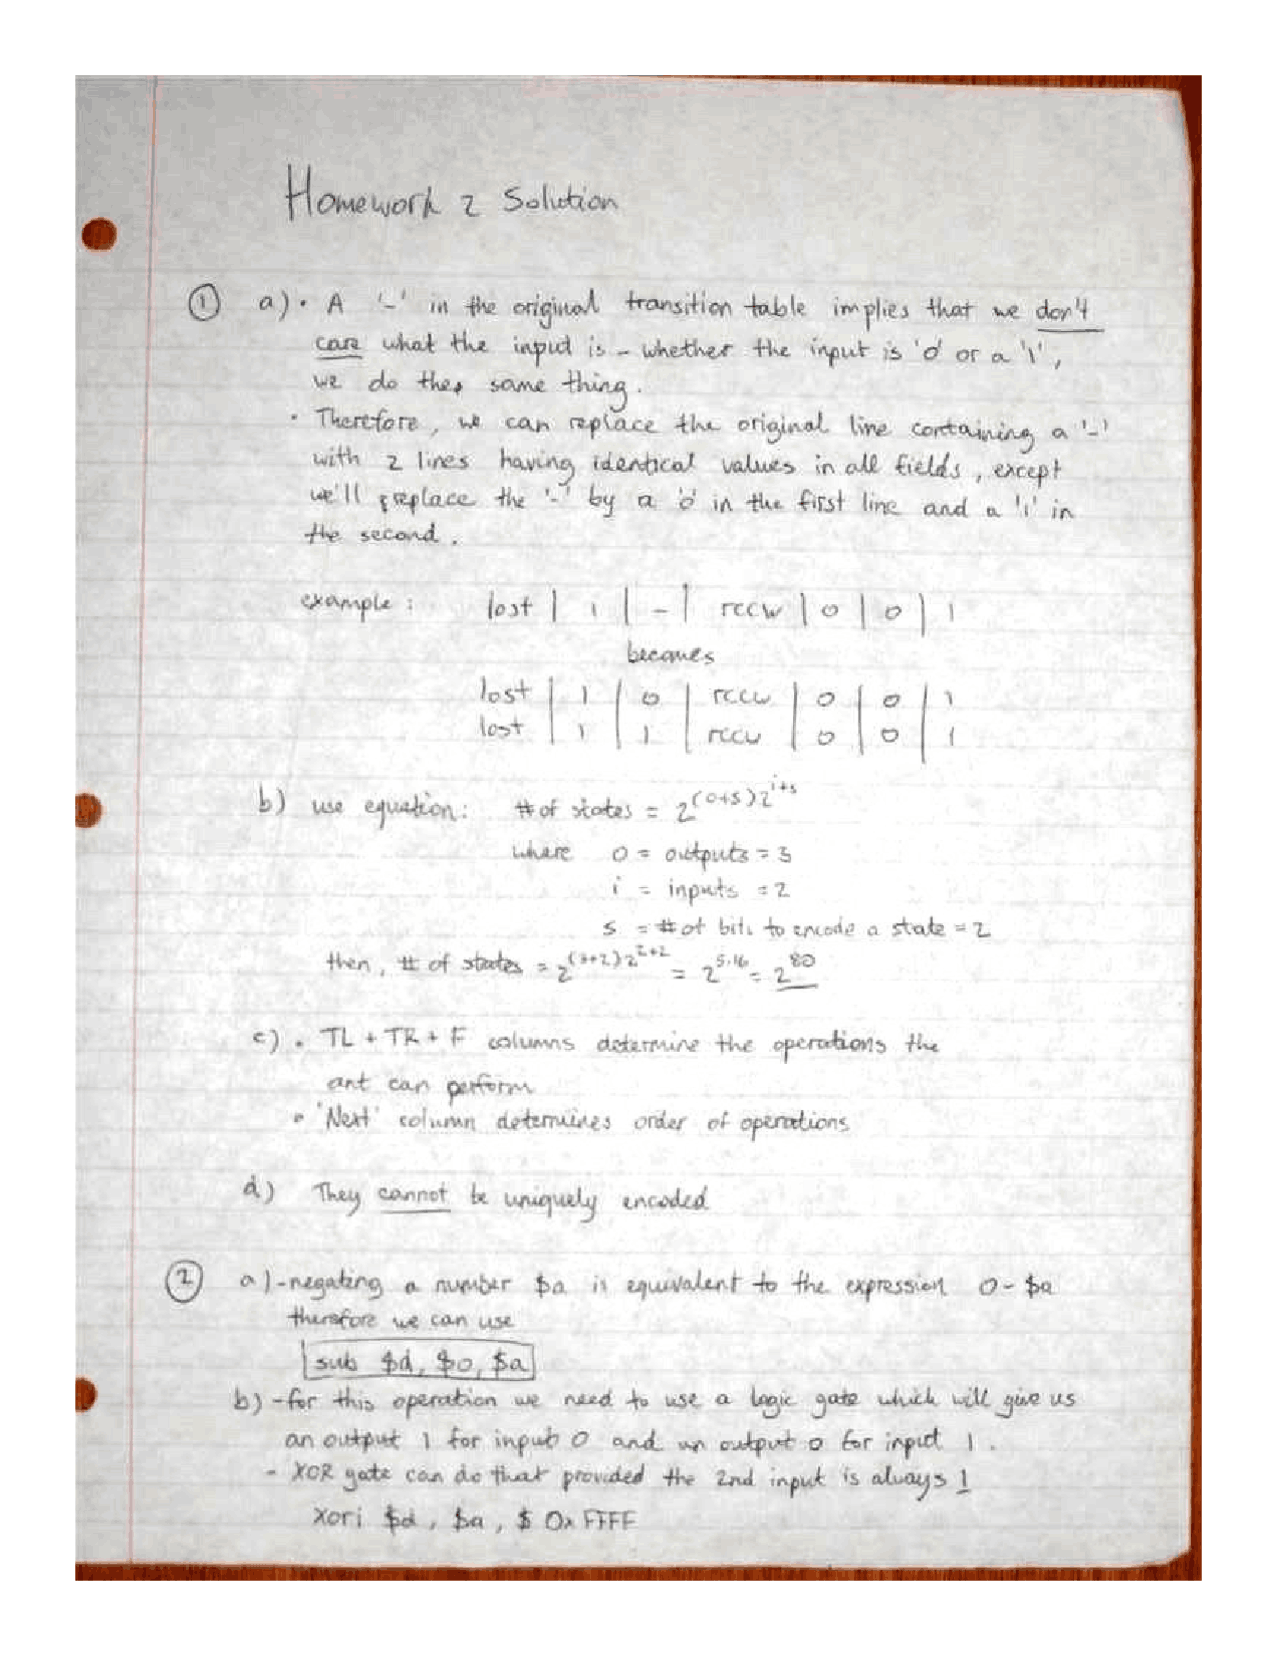 Homework 2 Solution
① a) • A '-' in the original transition table implies that we don't
care what the input is - whether the input is '0' or a '1',
we do the same thing.
• Therefore, we can replace the original line containing a '-'
with 2 lines having identical values in all fields, except
we'll replace the '-' by a '0' in the first line and a '1' in
the second.
example: lost | 1 | - | rccw | 0 | 0 | 1
becomes
lost | 1 | 0 | rccw | 0 | 0 | 1
lost | 1 | 1 | rccw | 0 | 0 | 1
b) use equation: # of states = 2^(o+s)2^i+s
where o = outputs = 3
i = inputs = 2
s = # of bits to encode a state = 2
then, # of states = 2^(3+2)2^2+2 = 2^5·16 = 2^80
c) • TL + TR + F columns determine the operations the
ant can perform
• 'Next' column determines order of operations
d) They cannot be uniquely encoded
② a) - negating a number $a is equivalent to the expression 0 - $a
therefore we can use
sub $d, $0, $a
b) - for this operation we need to use a logic gate which will give us
an output 1 for input 0 and an output 0 for input 1.
- XOR gate can do that provided the 2nd input is always 1
xori $d, $a, $ 0xFFFF